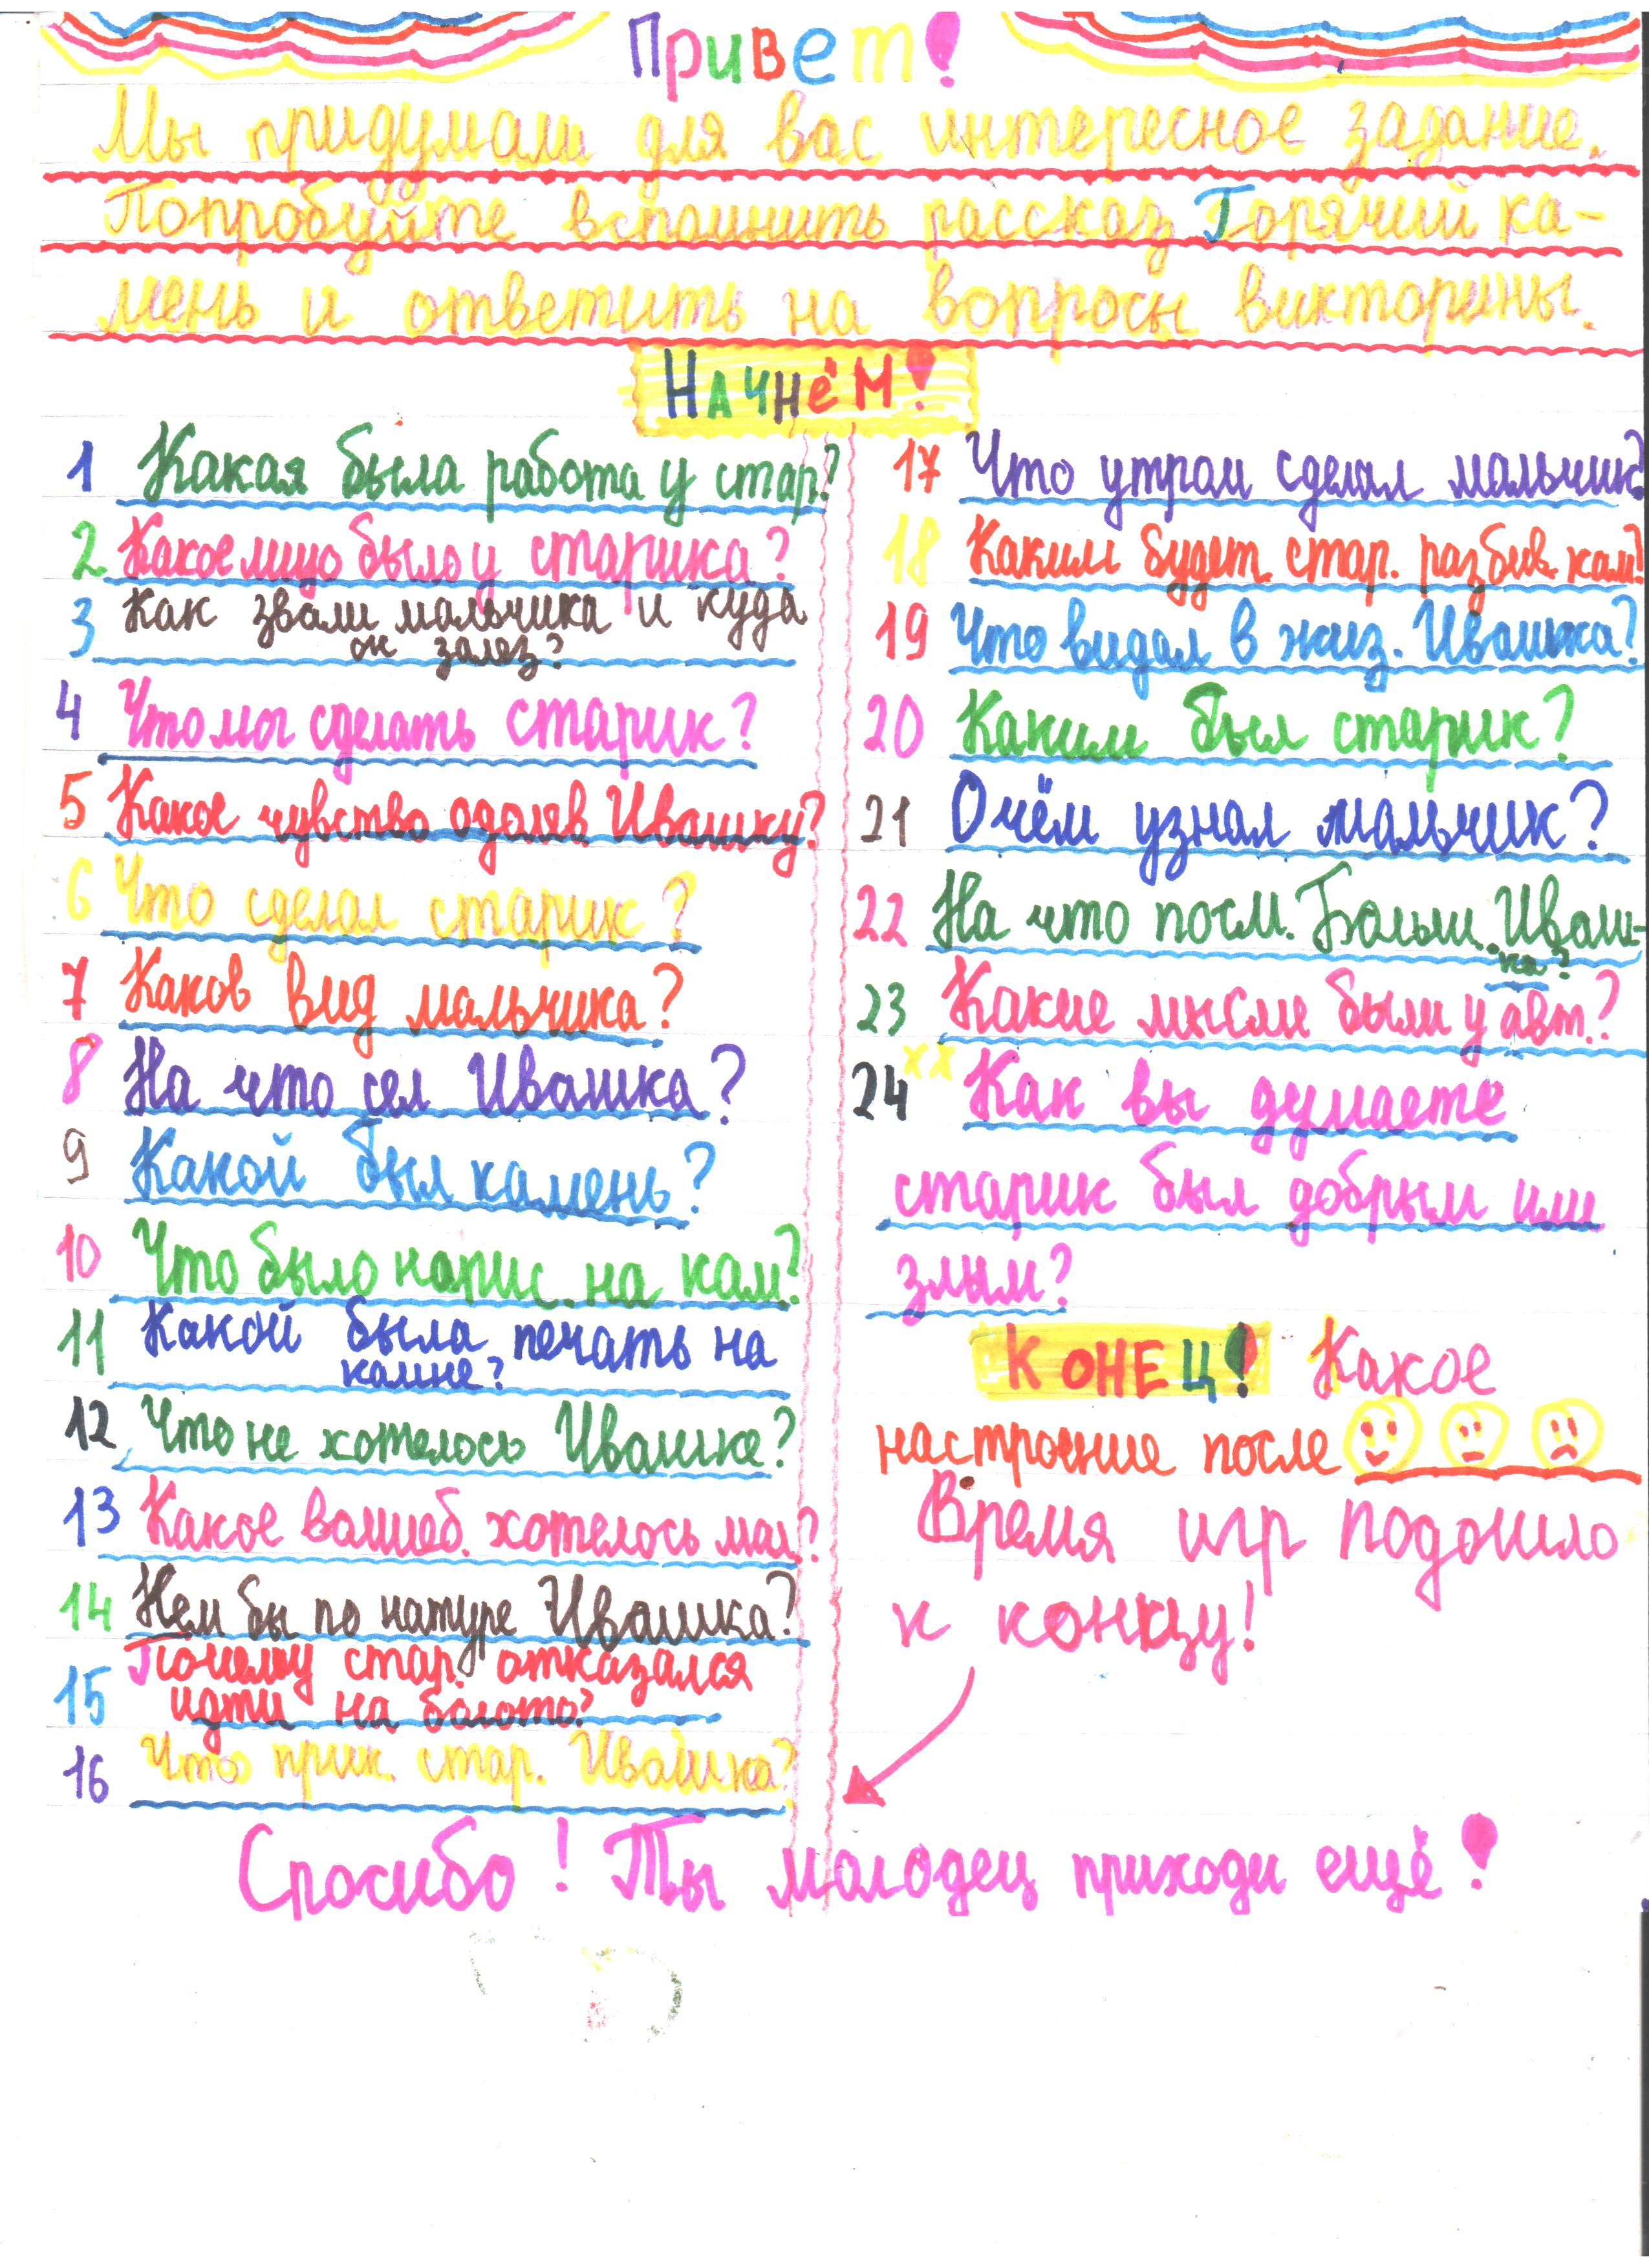 Привет!
Мы придумали для вас интересное задание.
Попробуйте вспомнить рассказ Горячий ка-
мень и ответить на вопросы викторины.
Начнём!
1 Какая была работа у стар.?
2 Какое лицо было у старика?
3 Как звали мальчика и куда
он залез?
4 Что мог сделать старик?
5 Какое чувство одоляв Ивашку?
6 Что сделал старик?
7 Каков вид мальчика?
8 На что сел Ивашка?
9 Какой был камень?
10 Что было напис. на кам.?
11 Какой была печать на
камне?
12 Что не хотелось Ивашке?
13 Какое волшеб. хотелось мал.?
14 Кем бы по натуре Ивашка?
15 Почему стар. отказался
идти на болото?
16 Что прик. стар. Ивашка?
17 Что утром сделал мальчик?
18 Каким будет стар. разбив. кам?
19 Что видал в жиз. Ивашка?
20 Каким был старик?
21 О чём узнал мальчик?
22 На что посм. Больш. Иваш-
ка?
23 Какие мысли были у авт.?
24 xx Как вы думаете
старик был добрым или
злым?
Конец! Какое
настроение после
Время игр подошло
к концу!
Спосибо! Ты молодец приходи ещё!